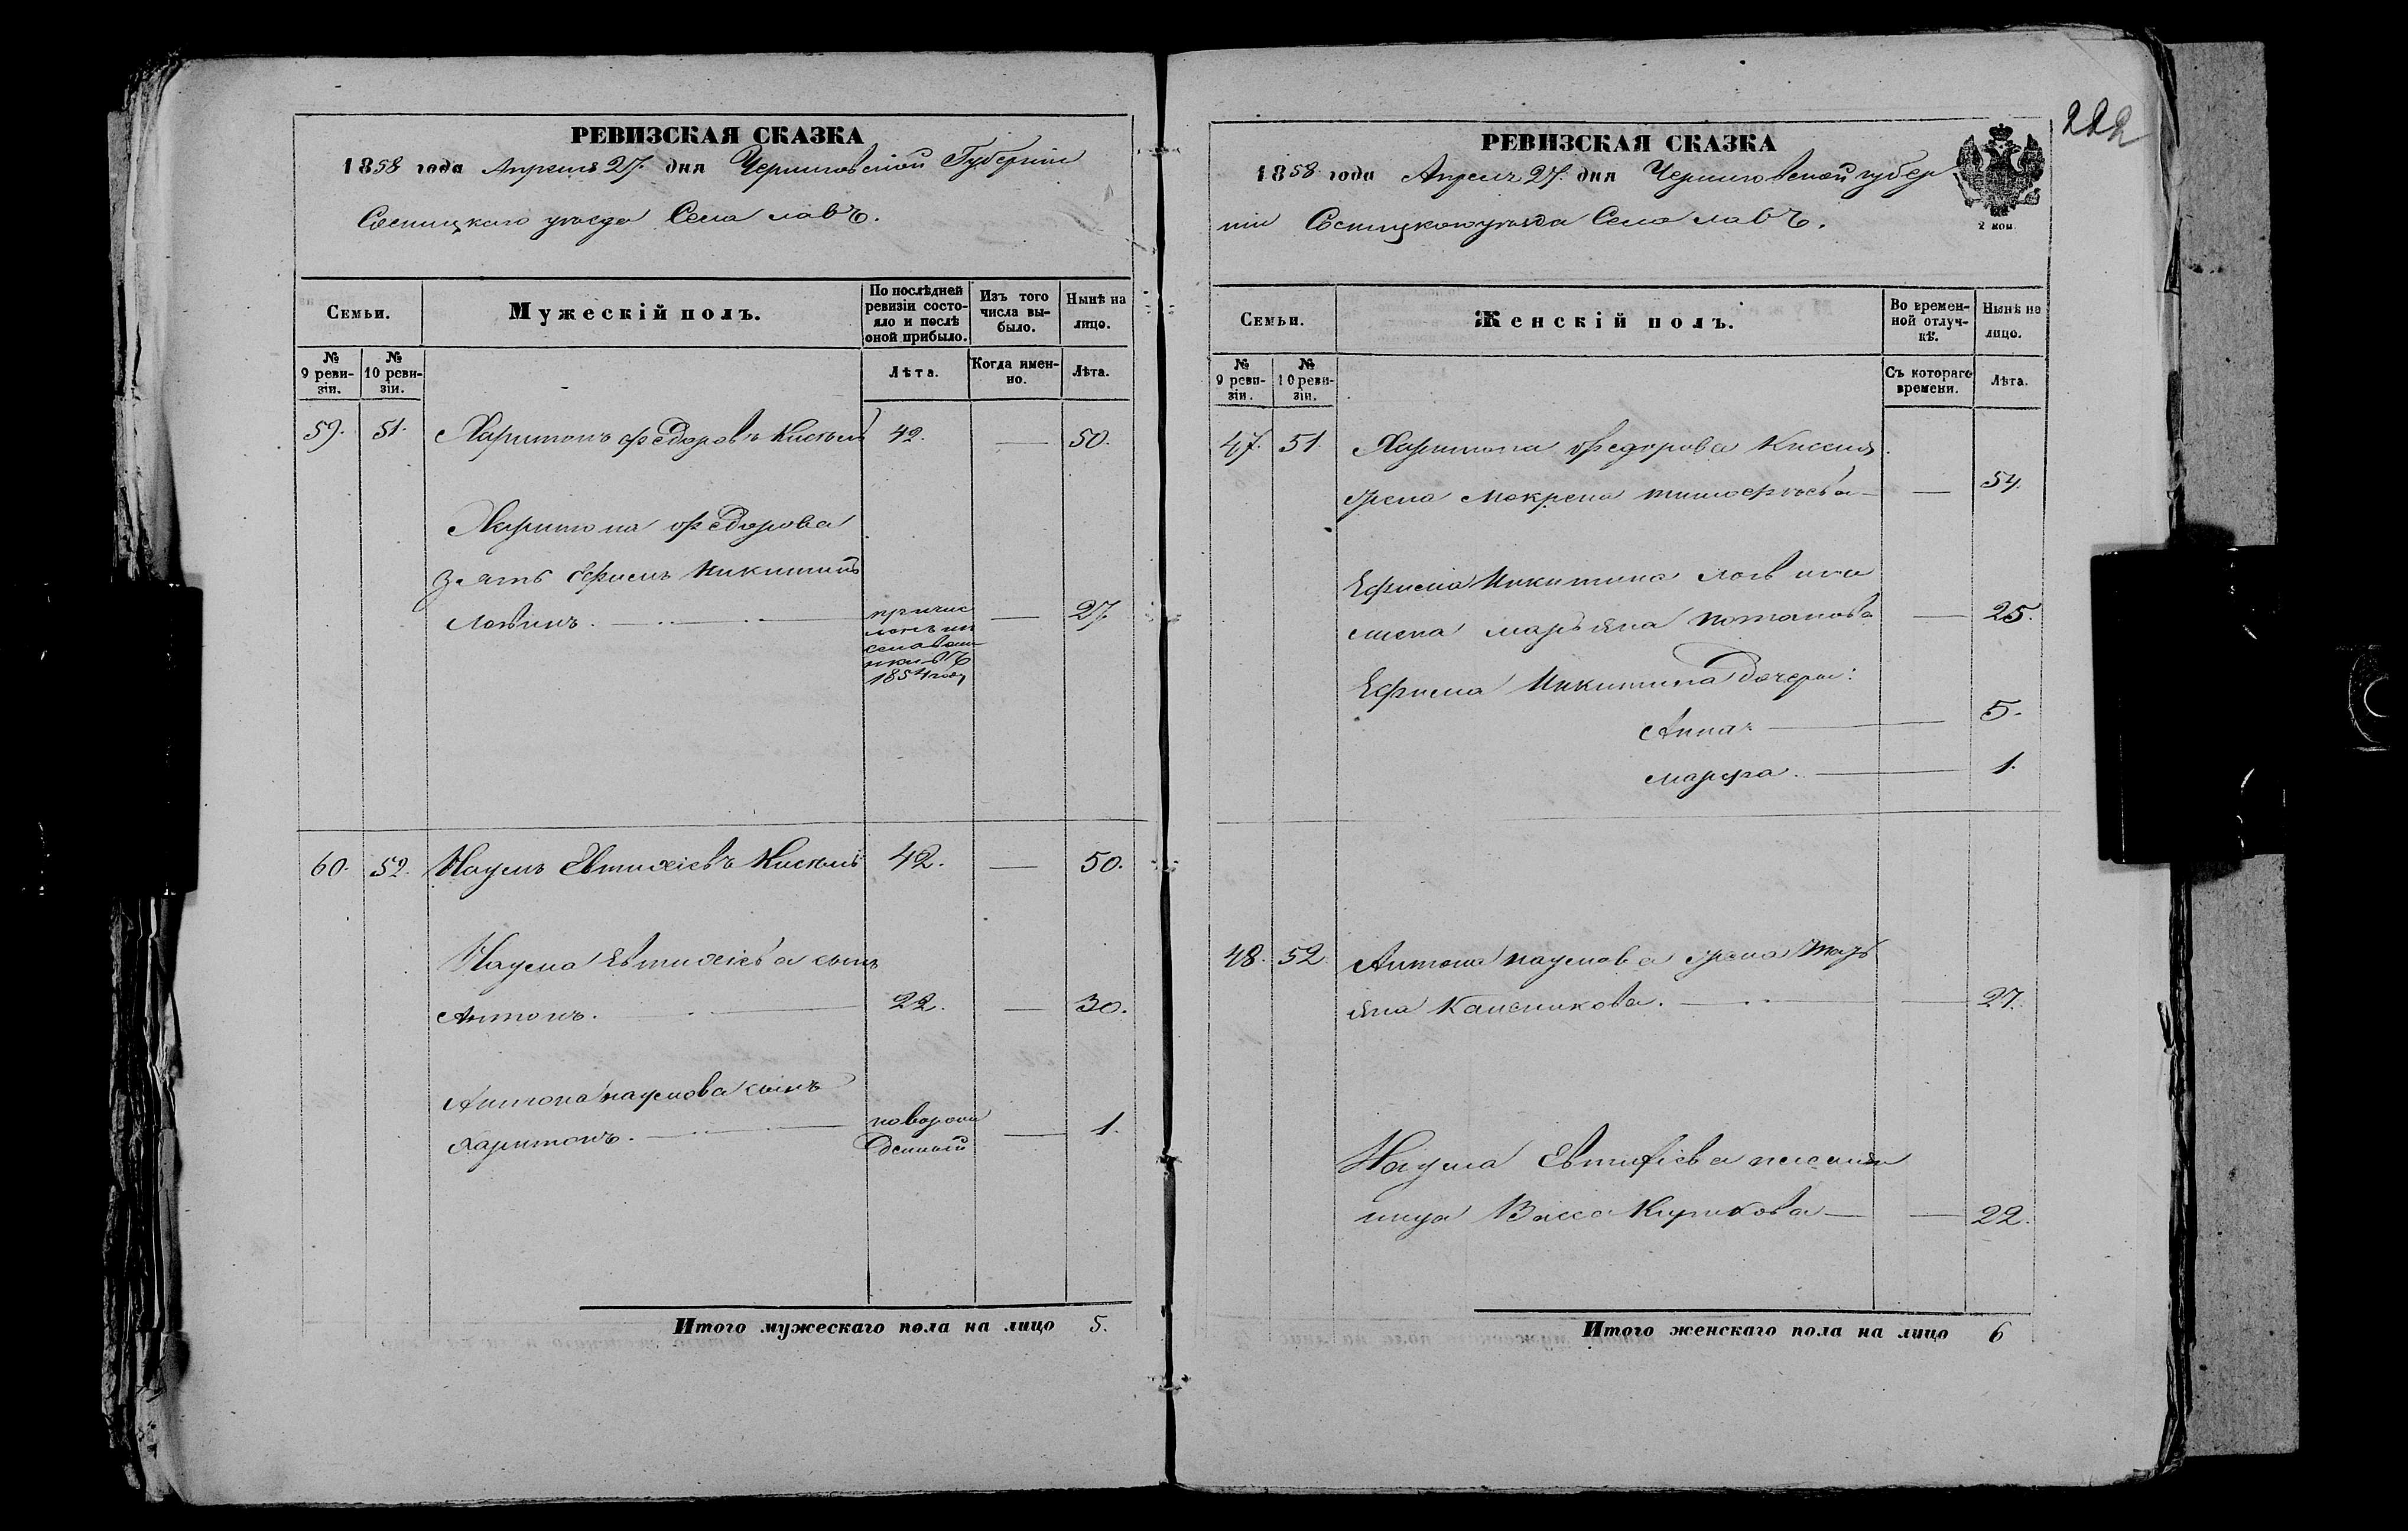 РЕВИЗСКАЯ СКАЗКА
1858 года Апреля 27. дня Черниговской Губерніи
Сосницкаго уѣзда Села лавъ.
Семьи.
Мужескій полъ.
По послѣдней ревизіи состояло и послѣ оной прибыло.
Изъ того числа выбыло.
Нынѣ на лицо.
№ 9 ревизіи.
№ 10 ревизіи.
Лѣта.
Когда именно.
Лѣта.
59. 51. Харитонъ Федоровъ Кисель 42. — 50.
Харитона Федорова
зять Ефимъ Никитинъ
— 27
причис
1854 году
60. 52. Наумъ Евтихіевъ Кисель 42. — 50.
Наума Евтихіева сынъ
Антонъ. 22. — 30.
Антона наумова сынъ
Харитонъ. новорож
денный — 1.
Итого мужескаго пола на лицо 5.
222
РЕВИЗСКАЯ СКАЗКА
2 коп.
1858 года Апреля 27. дня Черниговской губер
ніи Сосницкого уѣзда Села лавъ.
Семьи.
Женскій полъ.
Во временной отлучкѣ.
Нынѣ на лицо.
№ 9 ревизіи.
№ 10 ревизіи.
Съ котораго времени.
Лѣта.
47. 51. Харитона Федорова Киселя
жена Мокрена тимофѣева — 54.
Ефима Никитина
жена маръяна потапова — 25.
Ефима Никитина дочери:
Анна 5.
марфа. 1.
48. 52. Антона наумова жена Маръ
яна 27.
Наума Евтихіева племян
ница Васса Кирикова — 22.
Итого женскаго пола на лицо 6